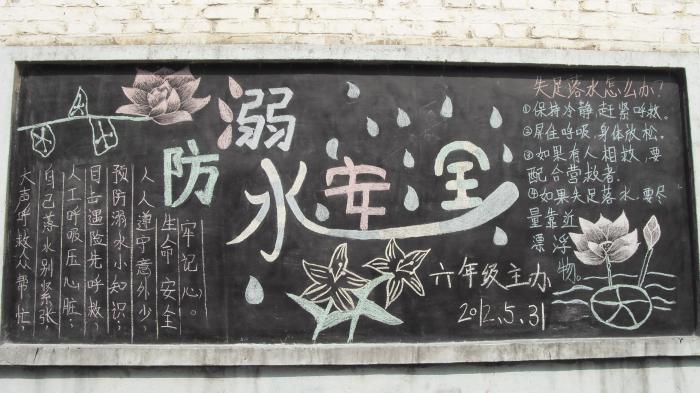 防溺水安全
大声呼救众帮忙;
自己落水别紧张;
人工呼吸压心脏;
目击遇险先呼救;
预防溺水小知识;
人人遵守意外少;
生命安全
牢记心。
失足落水怎么办?
①保持冷静,赶紧呼救。
②屏住呼吸,身体放松。
③如果有人相救,要
配合营救者.
④如果失足落水,要尽
量靠近
漂浮
物。
六年级主办
2012.5.31